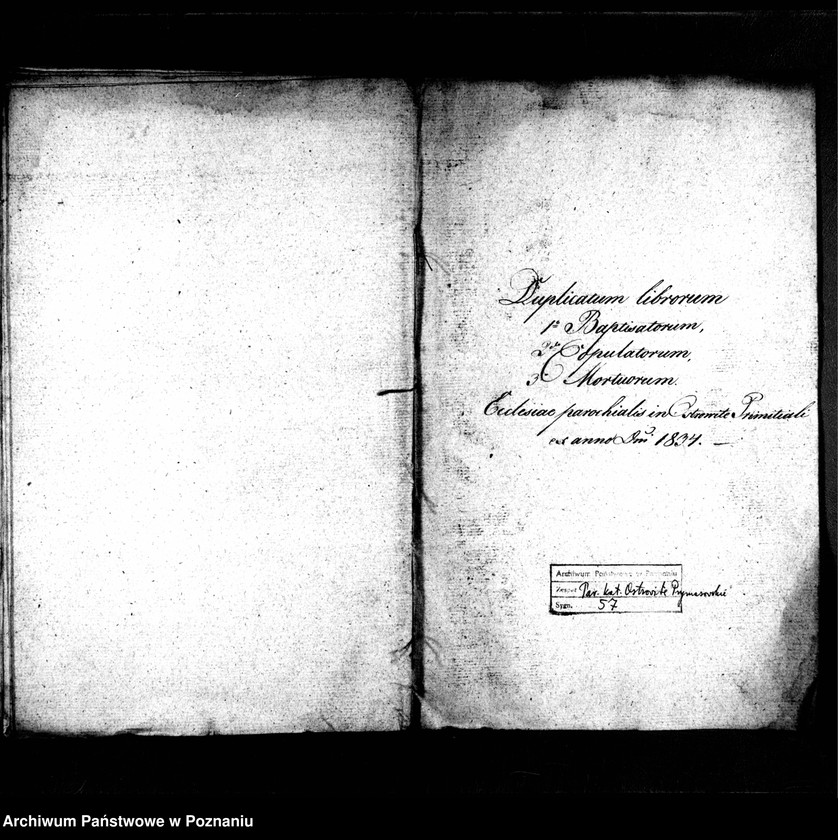 Duplicatum librorum
1º Baptisatorum,
2do Copulatorum,
3º Mortuorum.
Ecclesiae parochialis in Ostrowite Primitiali
ex anno Dni 1834. —
Archiwum Państwowe w Poznaniu
Zespół Par. kat. Ostrowite Prymasowskie
Sygn. 57
Archiwum Państwowe w Poznaniu